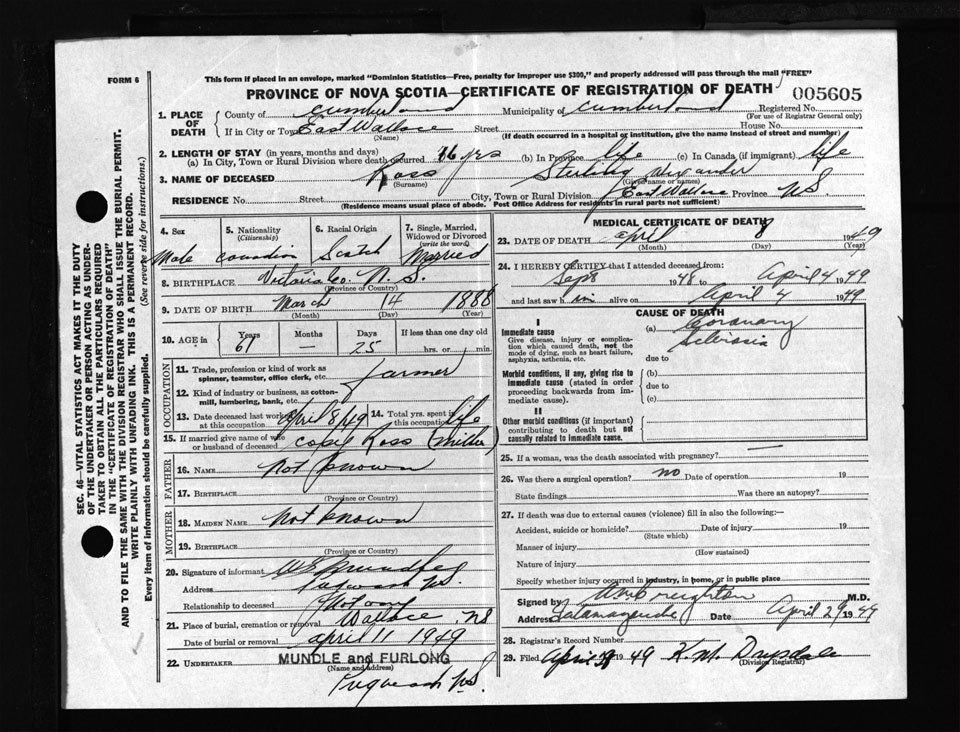 FORM 6
This form if placed in an envelope, marked "Dominion Statistics—Free, penalty for improper use $300," and properly addressed will pass through the mail "FREE"
PROVINCE OF NOVA SCOTIA—CERTIFICATE OF REGISTRATION OF DEATH
005605
SEC. 46—VITAL STATISTICS ACT MAKES IT THE DUTY
OF THE UNDERTAKER OR PERSON ACTING AS UNDER-
TAKER TO OBTAIN ALL THE PARTICULARS REQUIRED
IN THE "CERTIFICATE OF REGISTRATION OF DEATH"
AND TO FILE THE SAME WITH THE DIVISION REGISTRAR WHO SHALL ISSUE THE BURIAL PERMIT.
WRITE PLAINLY WITH UNFADING INK. THIS IS A PERMANENT RECORD.
Every item of information should be carefully supplied. (See reverse side for instructions.)
1. PLACE OF DEATH
County of Cumberland Municipality of Cumberland Registered No.
(For use of Registrar General only)
If in City or Town East Wallace Street House No.
(Name) (If death occurred in a hospital or institution, give the name instead of street and number)
2. LENGTH OF STAY (in years, months and days)
(a) In City, Town or Rural Division where death occurred 16 yrs (b) In Province life (c) In Canada (if immigrant) life
3. NAME OF DECEASED Ross Sterling Alexander
(Surname) (Given name or names)
RESIDENCE No. Street City, Town or Rural Division East Wallace Province N.S.
(Residence means usual place of abode. Post Office Address for residents in rural parts not sufficient)
4. Sex
Male
5. Nationality
(Citizenship)
Canadian
6. Racial Origin
Scotch
7. Single, Married, Widowed or Divorced
(write the word)
Married
8. BIRTHPLACE Victoria Co. N. S.
(Province or Country)
9. DATE OF BIRTH March 14 1888
(Month) (Day) (Year)
10. AGE in Years Months Days If less than one day old
61 — 25 hrs. or min.
OCCUPATION
11. Trade, profession or kind of work as
spinner, teamster, office clerk, etc. farmer
12. Kind of industry or business, as cotton-
mill, lumbering, bank, etc.
13. Date deceased last worked at this occupation April 8/49 14. Total yrs. spent in this occupation life
15. If married give name of wife or husband of deceased Ross (Miller)
FATHER
16. NAME Not known
17. BIRTHPLACE
(Province or Country)
MOTHER
18. MAIDEN NAME Not known
19. BIRTHPLACE
(Province or Country)
20. Signature of informant
Address Pugwash N.S.
Relationship to deceased Not any
21. Place of burial, cremation or removal Wallace NS
Date of burial or removal April 11 1949
22. UNDERTAKER MUNDLE and FURLONG
(Name and address)
Pugwash N.S.
MEDICAL CERTIFICATE OF DEATH
23. DATE OF DEATH April 1949
(Month) (Day) (Year)
24. I HEREBY CERTIFY that I attended deceased from:
Sept 1948 April 4 1949
and last saw him alive on April 4 1949
CAUSE OF DEATH
I
Immediate cause (a) Coronary
Give disease, injury or complica-
tion which caused death, not the
mode of dying, such as heart failure,
asphyxia, asthenia, etc.
due to
Morbid conditions, if any, giving rise to (b)
immediate cause (stated in order
proceeding backwards from im-
mediate cause).
due to
(c)
II
Other morbid conditions (if important)
contributing to death but not
causally related to immediate cause.
25. If a woman, was the death associated with pregnancy?
26. Was there a surgical operation? no Date of operation 19
State findings Was there an autopsy?
27. If death was due to external causes (violence) fill in also the following:—
Accident, suicide or homicide? Date of injury 19
(State which)
Manner of injury
(How sustained)
Nature of injury
Specify whether injury occurred in industry, in home, or in public place
Signed by Creighton M.D.
Address Tatamagouche Date April 29 1949
28. Registrar's Record Number
29. Filed April 1949 K. M. Drysdale
(Division Registrar)